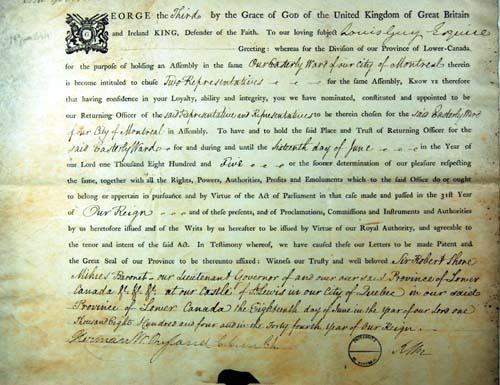 GEORGE the Third, by the Grace of God of the United Kingdom of Great Britain
and Ireland KING, Defender of the Faith. To our loving subject Louis Guy Esquire
Greeting: whereas for the Division of our Province of Lower-Canada
for the purpose of holding an Assembly in the same Our Easterly Ward of our city of Montreal therein
is become intituled to chuse Two Representatives for the same Assembly, Know ya therefore
that having confidence in your Loyalty, ability and integrity, you we have nominated, constituted and appointed to be
our Returning Officer of the said Representative and Representatives to be therein chosen for the said Easterly Ward
of our City of Montreal in Assembly. To have and to hold the said Place and Trust of Returning Officer for the
said Easterly Ward for and during and until the Sixteenth day of June in the Year of
our Lord one Thousand Eight Hundred and Five or the sooner determination of our pleasure respecting
the same, together with all the Rights, Powers, Authorities, Profits and Emoluments which to the said Office do or ought
to belong or appertain in pursuance and by Virtue of the Act of Parliament in that case made and passed in the 31st Year
of Our Reign and of these presents, and of Proclamations, Commissions and Instruments and Authorities
by us heretofore issued and of the Writs by us hereafter to be issued by Virtue of our Royal Authority, and agreeable to
the tenor and intent of the said Act. In Testimony whereof, we have caused these our Letters to be made Patent and
the Great Seal of our Province to be thereunto affixed: Witness our Trusty and well beloved Sir Robert Shore
Milnes Baronet our Lieutenant Governor of and our said Province of Lower
Canada &c. &c. &c. at our Castle St. Lewis in our City of Quebec in our said
Province of Lower Canada the Eighteenth day of June in the year of our Lord one
Thousand Eight Hundred and four and in the Forty fourth Year of Our Reign
Herman W. Ryland